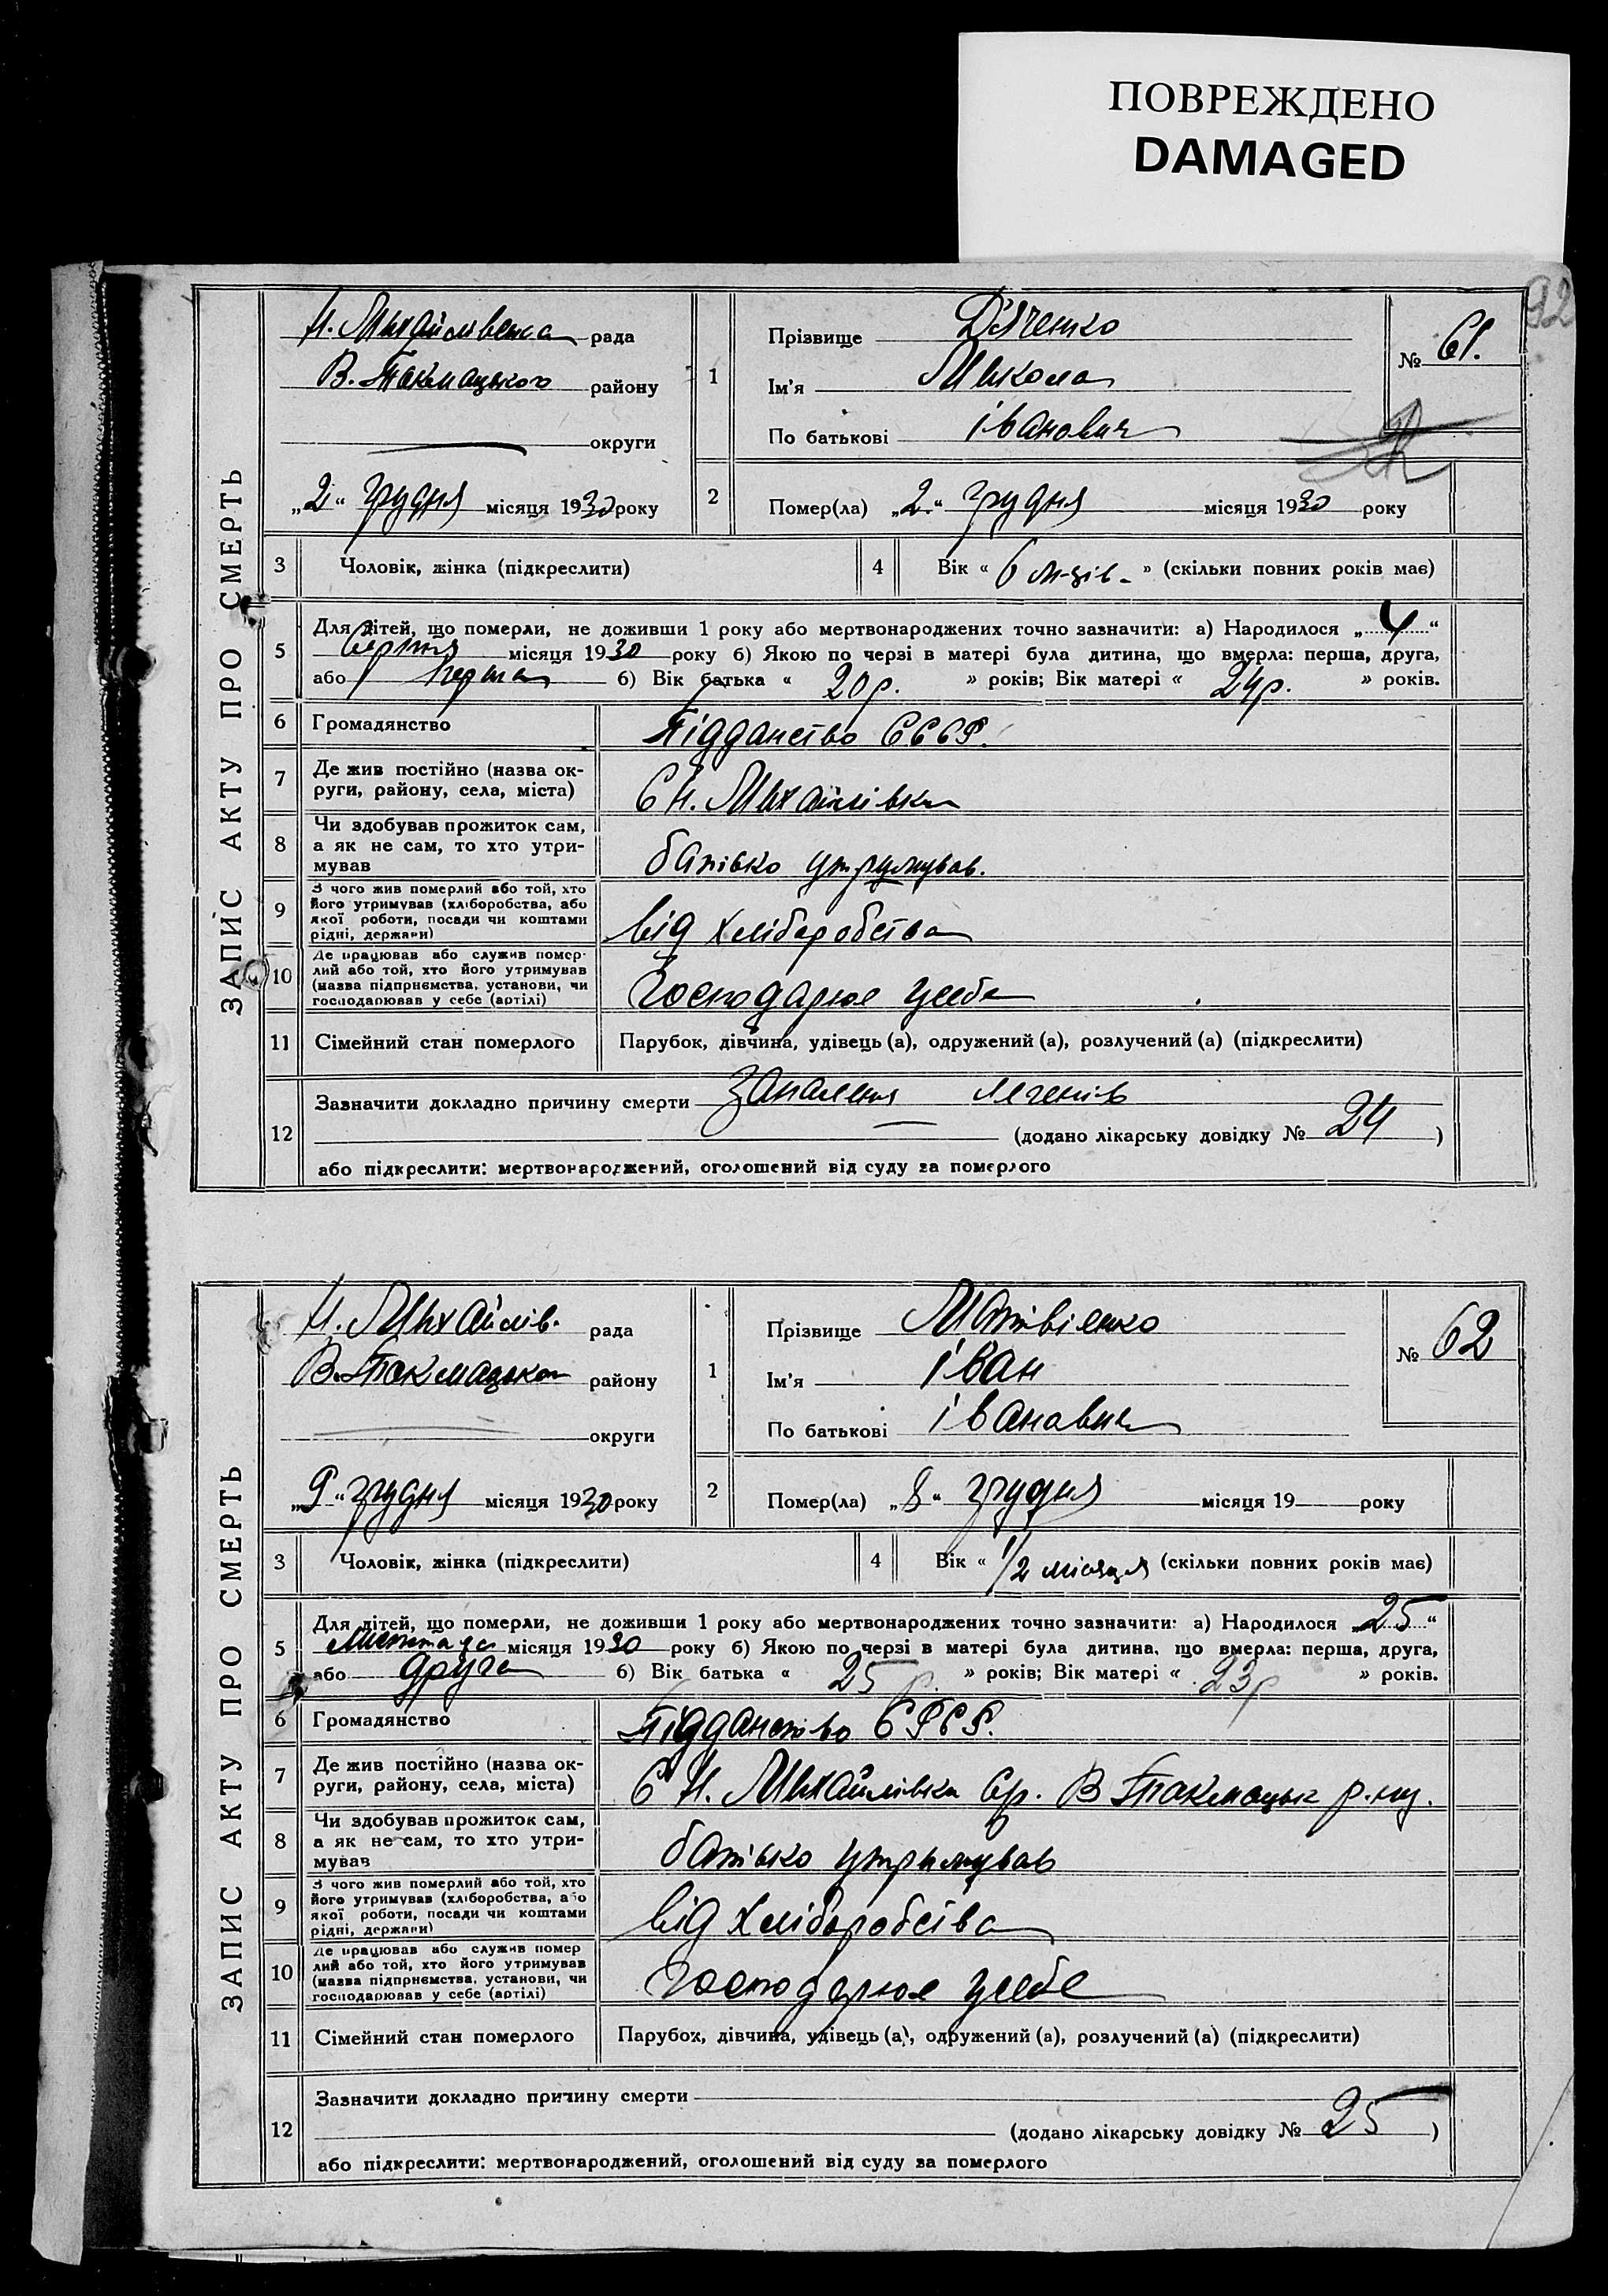 ПОВРЕЖДЕНО
DAMAGED
92
ЗАПИС АКТУ ПРО СМЕРТЬ
Н. Михайлівська рада
В. Токмацького району
округи
„2“ грудня місяця 1930 року
1 Прізвище Дяченко
Ім'я Микола
По батькові Іванович
№ 61.
2 Помер(ла) „2“ грудня місяця 1930 року
3 Чоловік, жінка (підкреслити)
4 Вік « 6 м-ців » (скільки повних років має)
5 Для дітей, що померли, не доживши 1 року або мертвонароджених точно зазначити: а) Народилося „4“
серпня місяця 1930 року б) Якою по черзі в матері була дитина, що вмерла: перша, друга,
або перша б) Вік батька « 20 р. » років; Вік матері « 24 р. » років.
6 Громадянство Підданство СССР.
7 Де жив постійно (назва ок-
руги, району, села, міста) С Н. Михайлівка
8 Чи здобував прожиток сам,
а як не сам, то хто утри-
мував батько утримував.
9 З чого жив померлий або той, хто
його утримував (хліборобства, або
якої роботи, посади чи коштами
рідні, держави) від хліборобства
10 Де працював або служив помер-
лий або той, хто його утримував
(назва підприємства, установи, чи
господарював у себе (артілі) Господарює усебе
11 Сімейний стан померлого Парубок, дівчина, удівець (а), одружений (а), розлучений (а) (підкреслити)
12 Зазначити докладно причину смерти Запаленя легенів
(додано лікарську довідку № 24 )
або підкреслити: мертвонароджений, оголошений від суду за померлого
ЗАПИС АКТУ ПРО СМЕРТЬ
Н. Михайлів. рада
В. Токмацького району
округи
„9“ грудня місяця 1930 року
1 Прізвище Матвієнко
Ім'я Іван
По батькові Іванович
№ 62
2 Помер(ла) „8“ грудня місяця 19 року
3 Чоловік, жінка (підкреслити)
4 Вік « 1/2 місяця (скільки повних років має)
5 Для дітей, що померли, не доживши 1 року або мертвонароджених точно зазначити: а) Народилося „25“
Листопада місяця 1930 року б) Якою по черзі в матері була дитина, що вмерла: перша, друга,
або друга б) Вік батька « 25 р. » років; Вік матері « 23 р » років.
6 Громадянство Підданство СРСР.
7 Де жив постійно (назва ок-
руги, району, села, міста) С Н. Михайлівка В Токмацьк р.ну.
8 Чи здобував прожиток сам,
а як не сам, то хто утри-
мував батько утримував
9 З чого жив померлий або той, хто
його утримував (хліборобства, або
якої роботи, посади чи коштами
рідні, держави) від хліборобства
10 Де працював або служив помер
лий або той, хто його утримував
(назва підприємства, установи, чи
господарював у себе (артілі) Господарює усебе
11 Сімейний стан померлого Парубок, дівчина, удівець (а), одружений (а), розлучений (а) (підкреслити)
12 Зазначити докладно причину смерти
(додано лікарську довідку № 25 )
або підкреслити: мертвонароджений, оголошений від суду за померлого